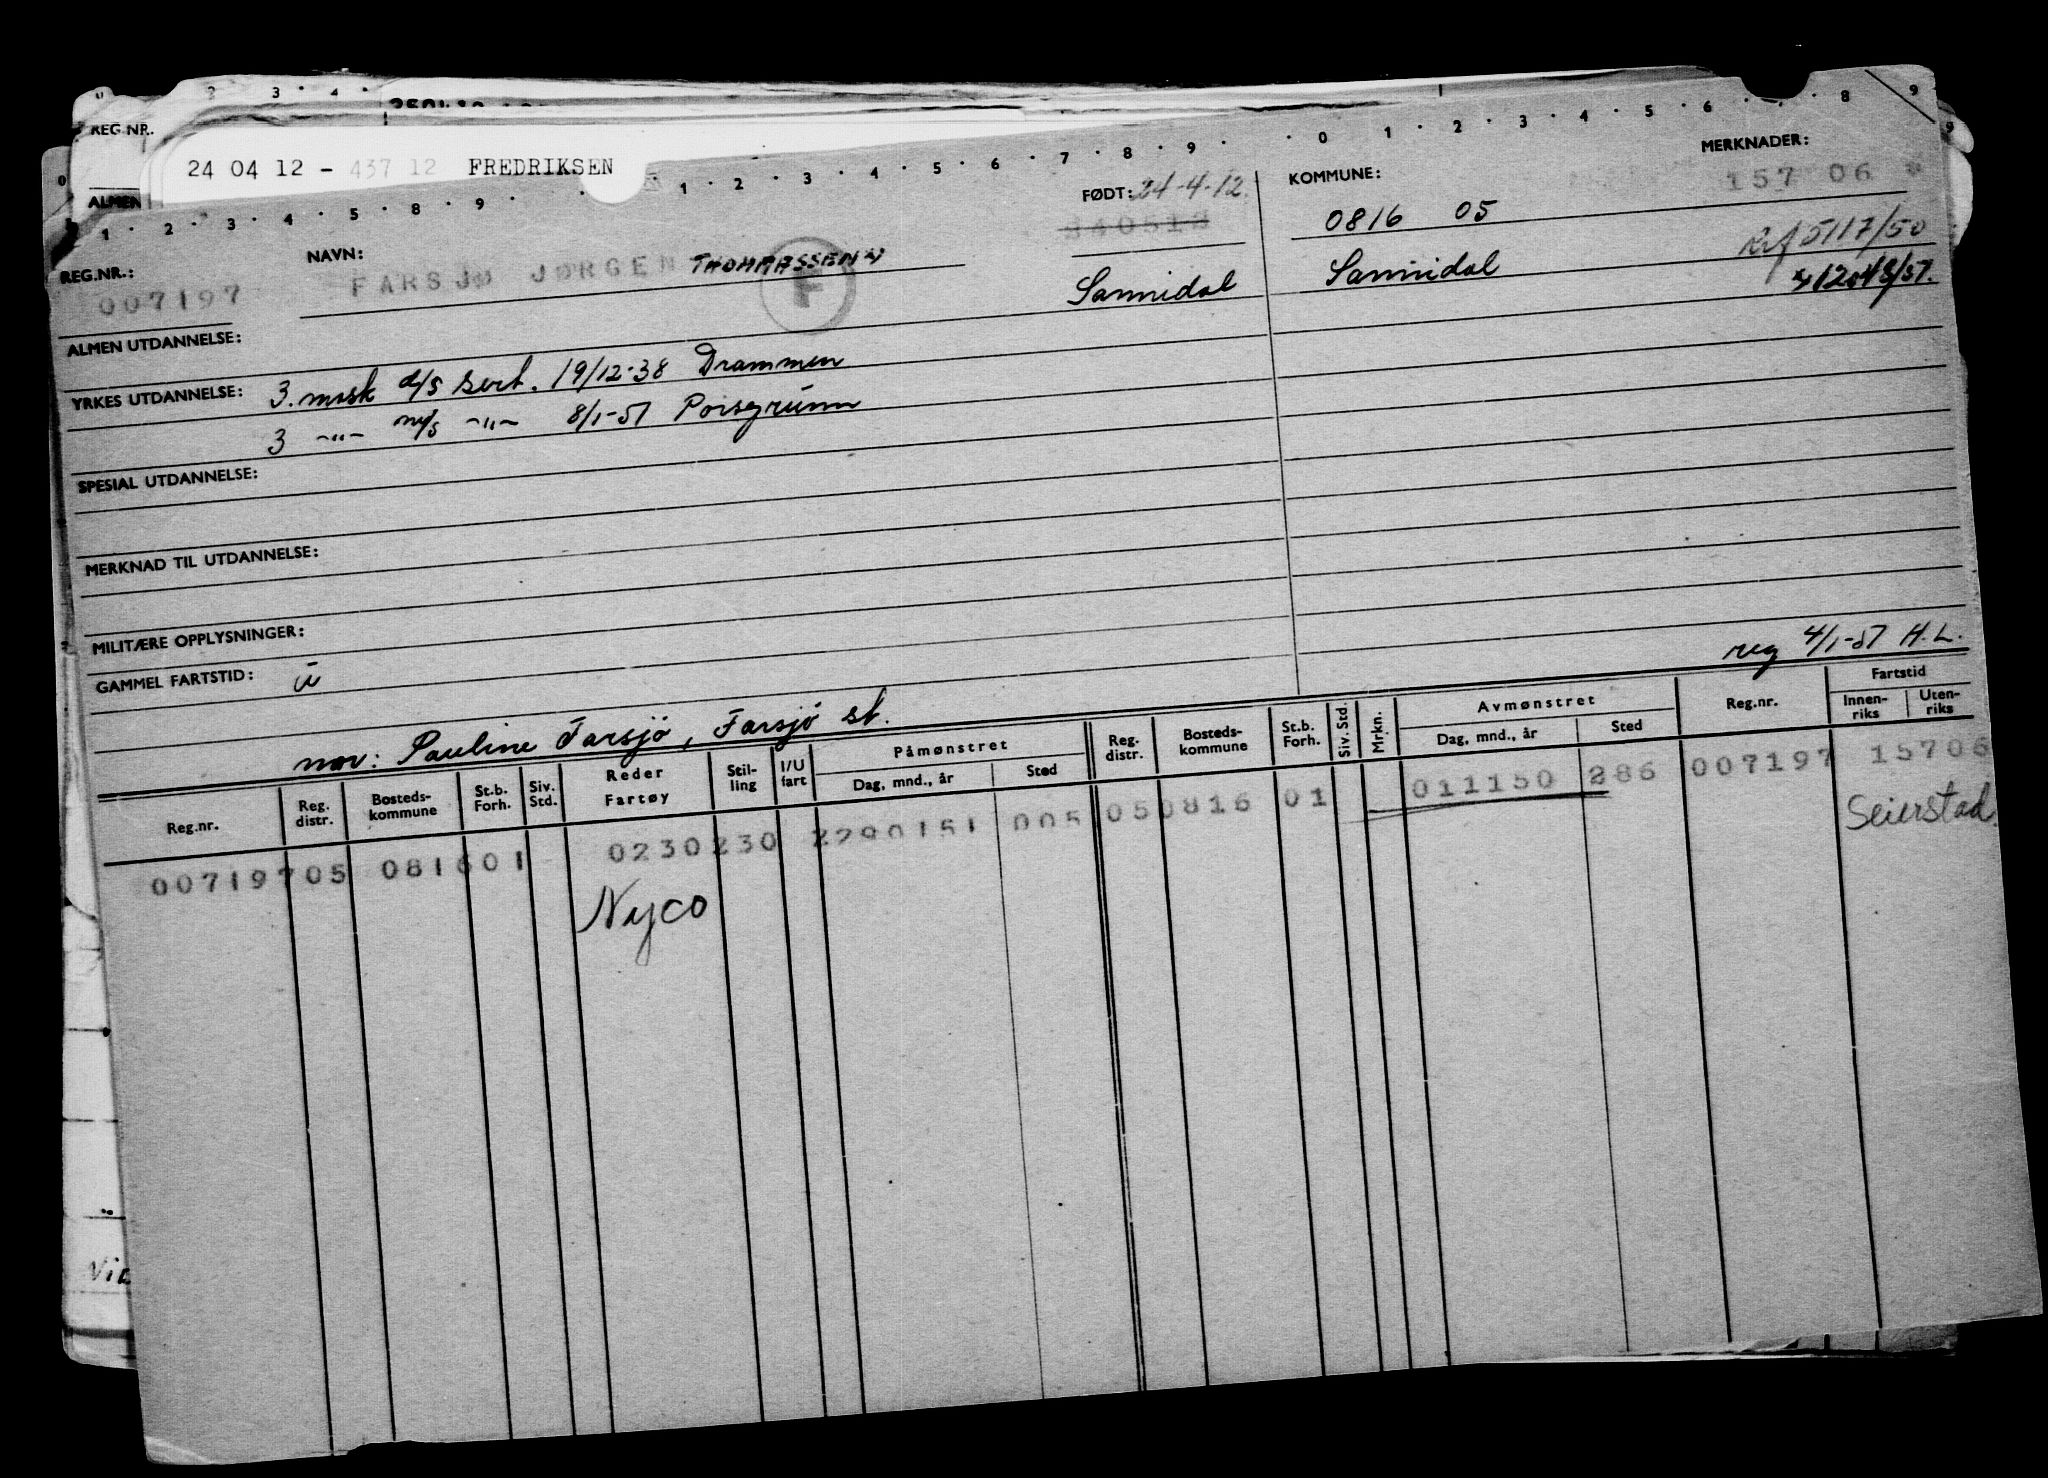 REG.NR.
24 04 12 - 437 12 FREDRIKSEN
ALMEN
0 1 2 3 4 5 6 7 8 9
MERKNADER:
157 06
FØDT: 24-4-12.
KOMMUNE:
240512
0816 05
Sannidal
Sannidal
5117/50
NAVN:
FARSJØ JØRGEN THOMASSEN
F
REG.NR.:
007197
ALMEN UTDANNELSE:
YRKES UTDANNELSE: 3. mask d/s sert. 19/12-38 Drammen
3 -"- m/s -"- 8/1-51 Porsgrunn
SPESIAL UTDANNELSE:
MERKNAD TIL UTDANNELSE:
MILITÆRE OPPLYSNINGER:
reg 4/1-51 H.L.
GAMMEL FARTSTID: ü
mor: Pauline Farsjö, Farsjö st.
Reg.nr. Reg. distr. Bosteds- kommune St.b. Forh. Siv. Std. Reder Fartøy Stil- ling I/U fart Påmønstret Dag, mnd., år Sted Reg. distr. Bosteds- kommune St.b. Forh. Siv. Std. Mrkn. Avmønstret Dag, mnd., år Sted Reg.nr. Fartstid Innen- riks Uten- riks
007197 05 0816 01 0230 230 2290151 005 05 0816 01 011150 286 007197 15706
Nyco
Seierstad.